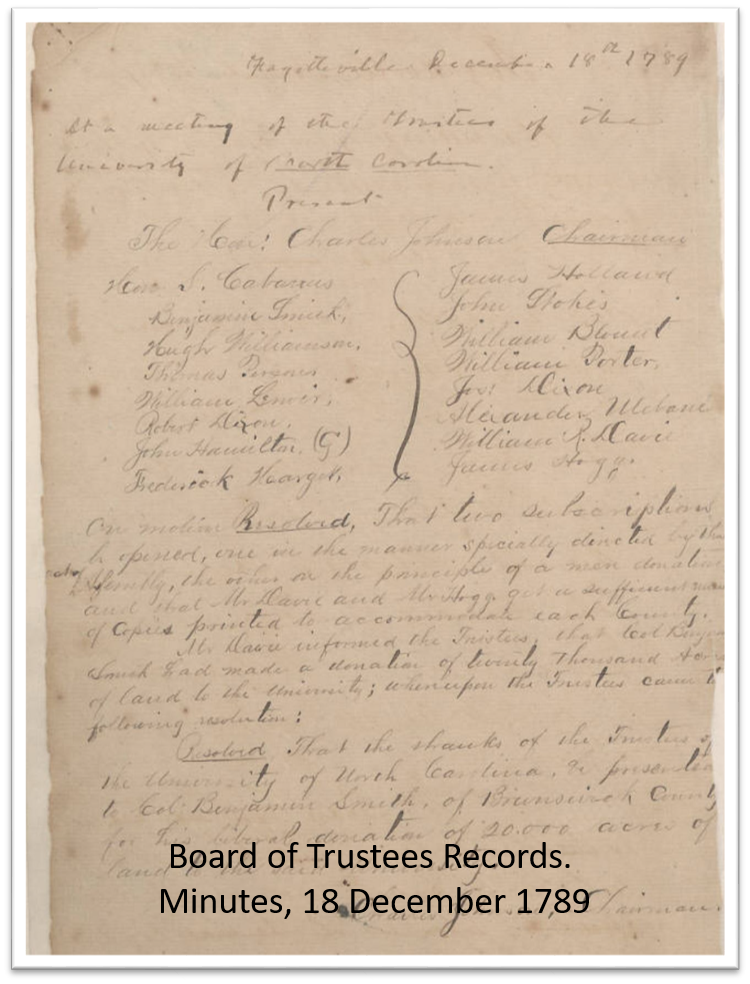 Fayetteville December 18th 1789
At a meeting of the Trustees of the
University of North Carolina.
Present
The Hon: Charles Johnson Chairman
Hon S. Cabarrus
Benjamin Smith,
Hugh Williamson,
Thomas Person
William Lenoir,
Robert Dixon,
John Hamilton (G)
Frederick Harget,
James Holland
John Stokes
William Blount
William Porter,
Jos: Dixon
Alexander Mebane
William R. Davie
James Hogg.
On motion Resolved, That two subscriptions
be opened, one in the manner specially directed by the
Assembly, the other on the principle of a mere donation
and that Mr Davie and Mr Hogg get a sufficient
of Copies printed to accommodate each County.
Mr Davie informed the Trustees, that Col Benjam
Smith had made a donation of twenty Thousand Acres
of land to the University; whereupon the Trustees came to
following resolution:
Resolved That the thanks of the Trustees of
the University of North Carolina, be presented
to Col: Benjamin Smith, of Brunswick County
for his liberal donation of 20.000 acres of
land to the said University.
Charles Johnson, Chairman.
Board of Trustees Records.
Minutes, 18 December 1789